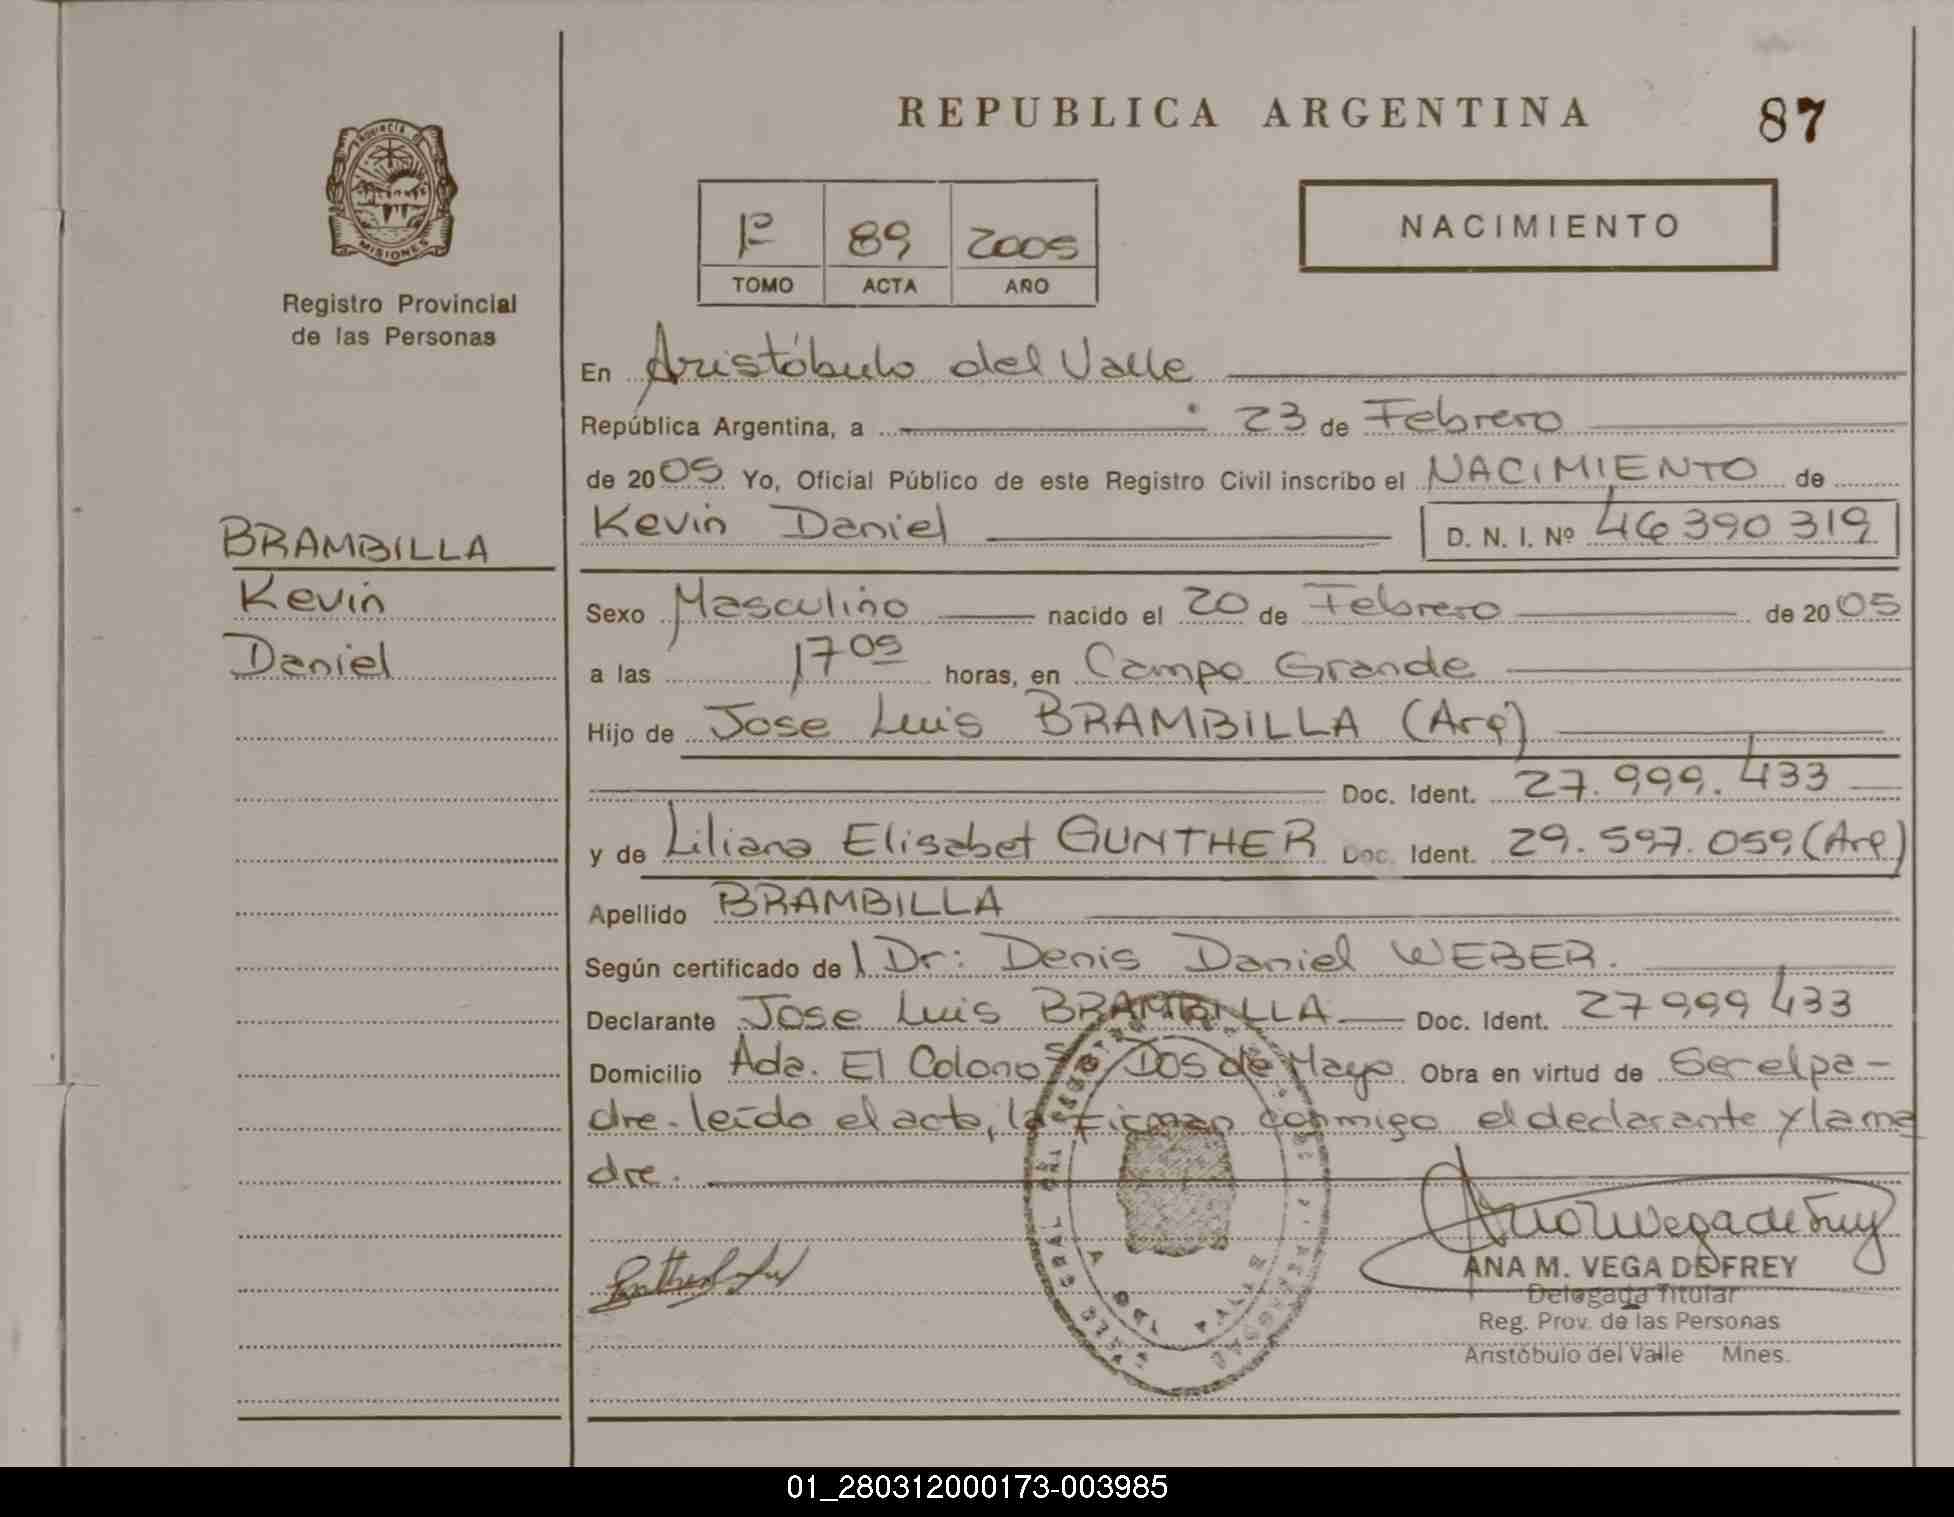 REPUBLICA ARGENTINA
87
PROVINCIA DE
MISIONES
Registro Provincial
de las Personas
1º 89 2005
TOMO ACTA AÑO
NACIMIENTO
En Aristóbulo del Valle
República Argentina, a 23 de Febrero
de 2005 Yo, Oficial Público de este Registro Civil inscribo el NACIMIENTO de
Kevin Daniel D. N. I. Nº 46390319
BRAMBILLA
Kevin
Daniel
Sexo Masculino nacido el 20 de Febrero de 2005
a las 17 05 horas, en Campo Grande
Hijo de Jose Luis BRAMBILLA (Arg)
Doc. Ident. 27.999.433
y de Liliana Elisabet GUNTHER Doc. Ident. 29.597.059 (Arg)
Apellido BRAMBILLA
Según certificado de l Dr: Denis Daniel WEBER.
Declarante Jose Luis BRAMBILLA Doc. Ident. 27999433
Domicilio Ada. El Colono Dos de Mayo Obra en virtud de Ser el pa-
dre. leído el acta, la firman conmigo el declarante y la ma
dre.
ANA M. VEGA DE FREY
Delegada Titular
Reg. Prov. de las Personas
Aristóbulo del Valle Mnes.
01_280312000173-003985